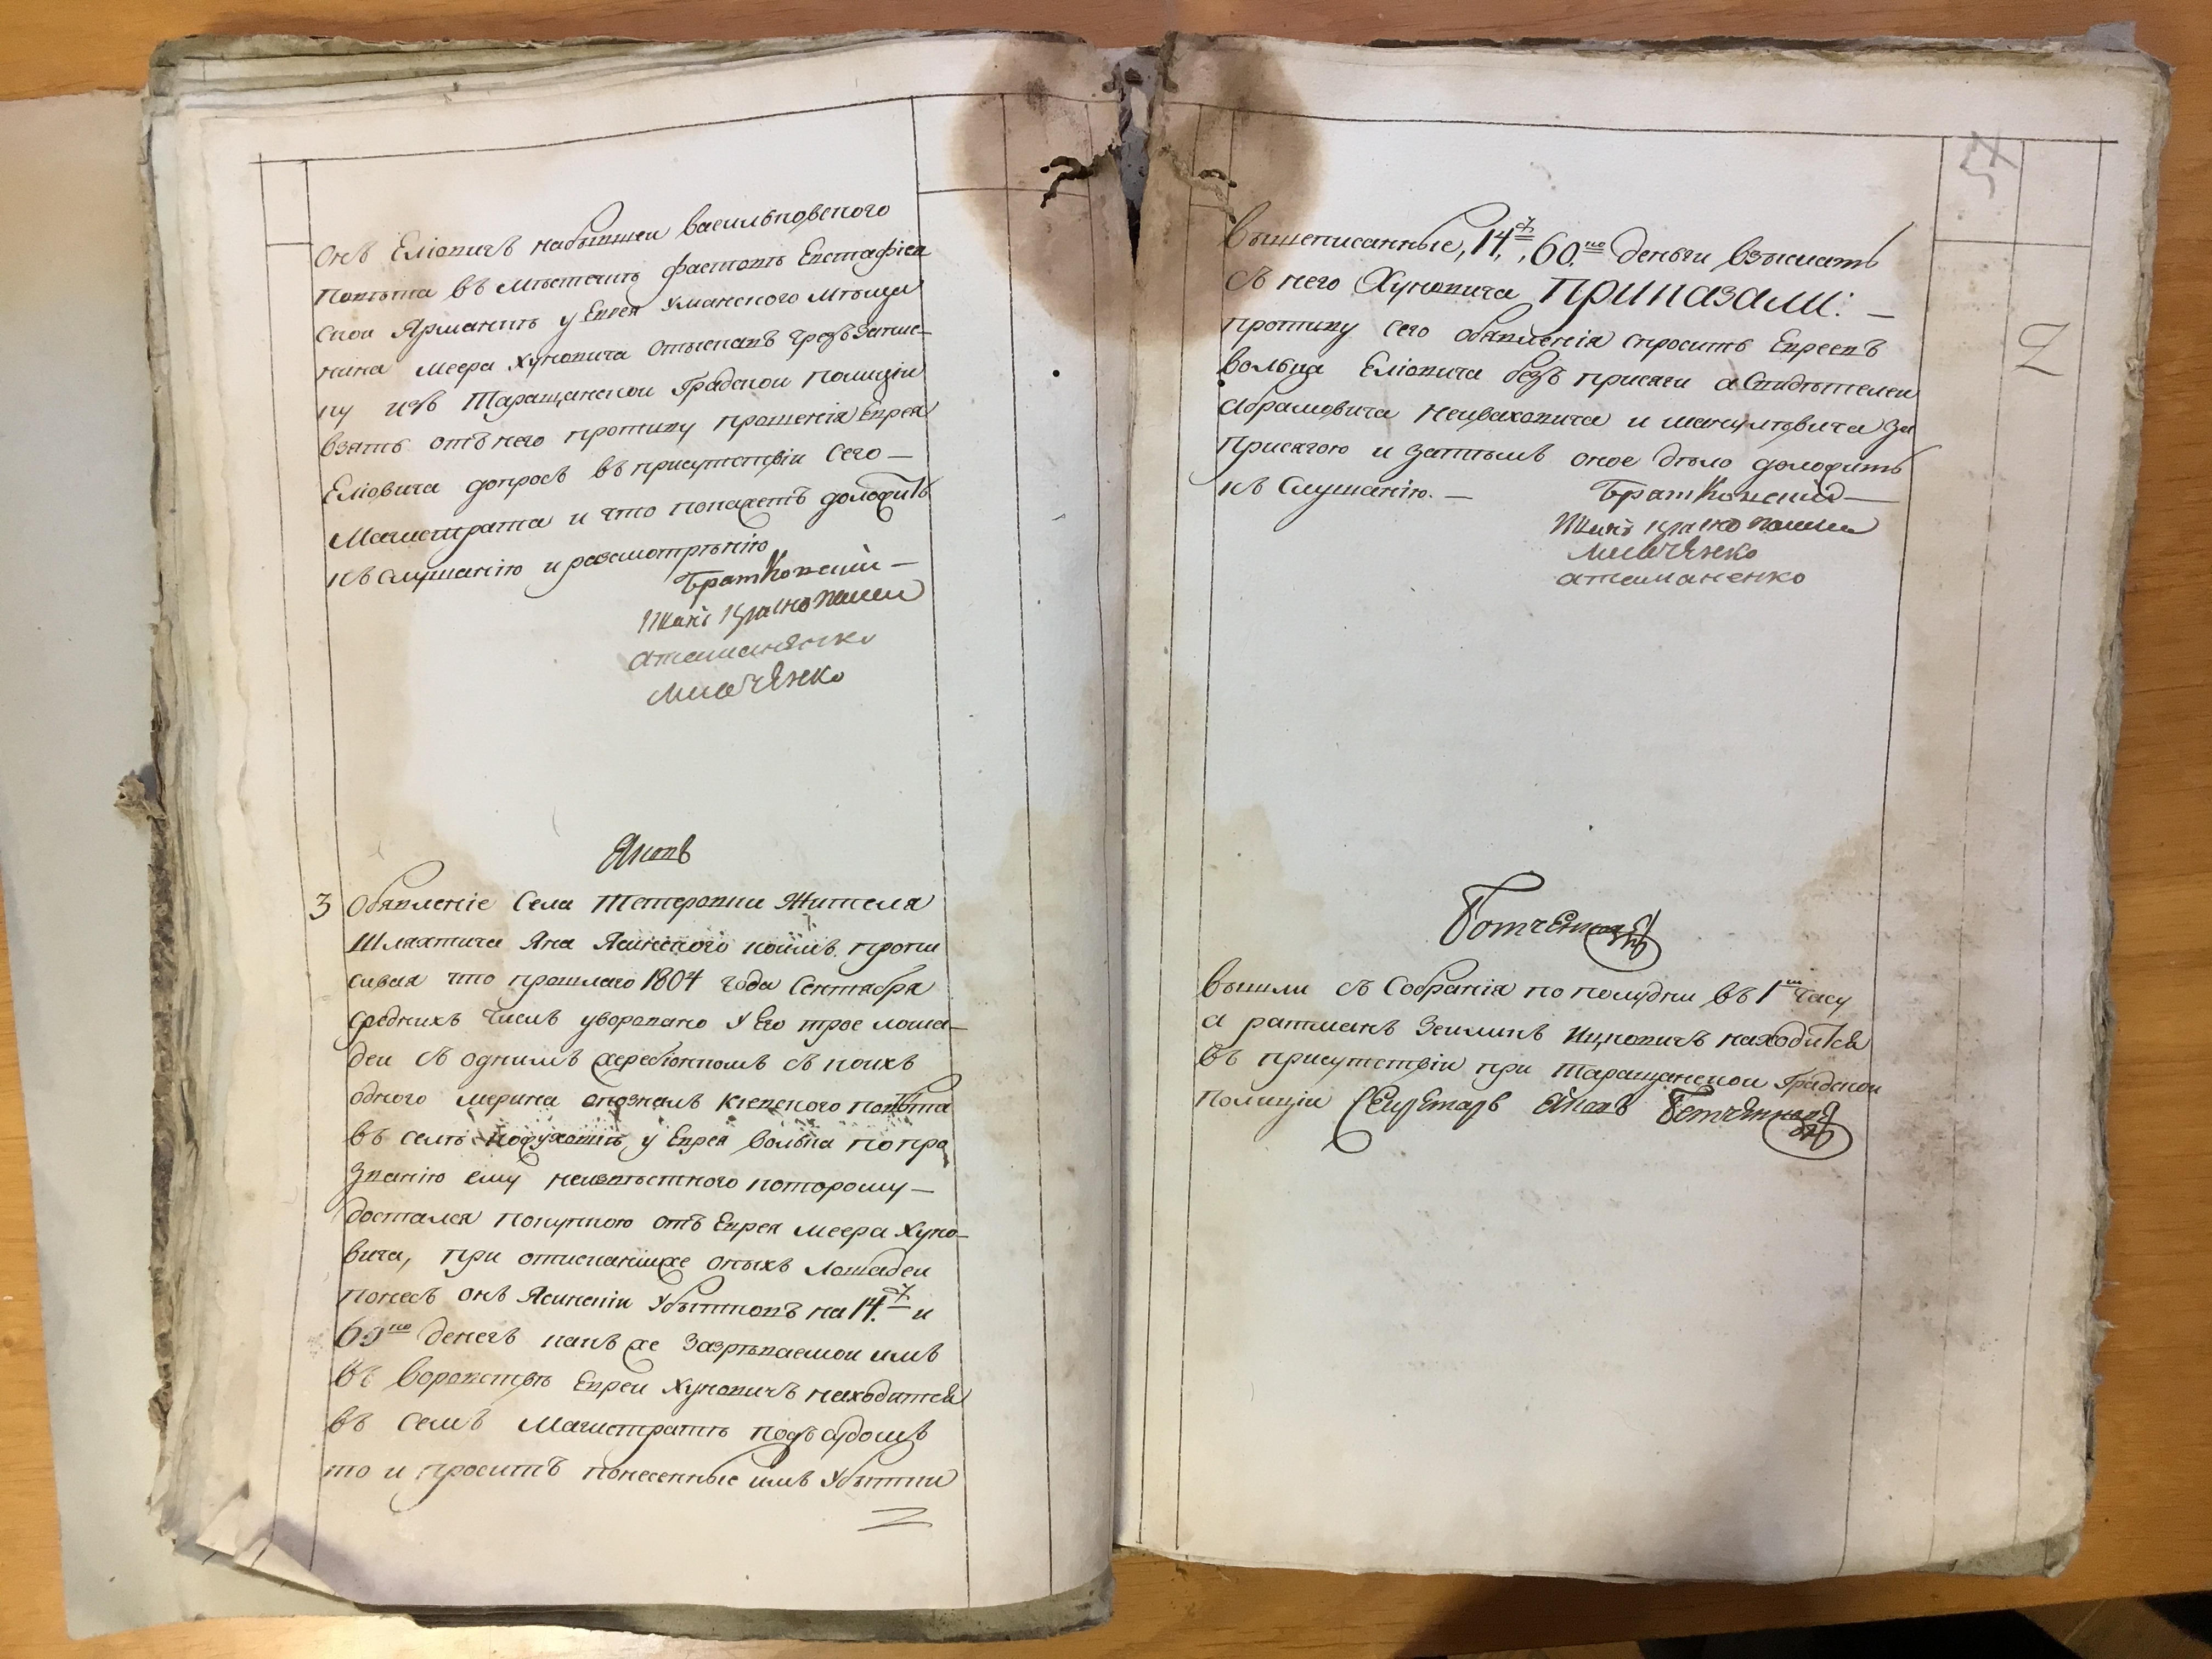 онъ Еліовичъ набывшеи васильковского
повѣта въ мѣстечкѣ фастовѣ Евстафіев
ской Ярманкѣ у Еврея Уманского мѣща
нина меера Хуновича отыскавъ чрезъ Запис–
ку изъ Таращанской Градской полиціи
взять отъ него противу прошенія Еврея
Еліовича допросъ въ присутствіи Сего –
Магистрата и что покажетъ доложить
къ слушанію и разсмотрѣнію
Братковскій –
Атаманенко
Яковъ
3 Обявленіе Села Тетеровки Жителя
Шляхтича Яна Ясинского коимъ пропи
сывая что прошлаго 1804 года Сентября
средныхъ числъ уворовано у Его трое лоша–
дей съ однимъ жеребіонкомъ съ коихъ
одного мерина опозналъ кіевского повѣта
въ селѣ у Еврея волька по про
званію ему неизвѣстного которому –
достался покупкою отъ Еврея меера Хуно–
вича, при отисканіиже оныхъ лошадей
понесъ онъ Ясинскій убытковъ на 14. и
60 ко денегъ какъ же Зазрѣваемой имъ
въ воровствѣ Еврей Хуновичъ находится
въ семъ Магистратѣ подъ судомъ
то и проситъ понесенные имъ убытки
54
вышеписанные, 14, 60. ко деньги взыскать
съ него Хуновича приказали: –
противу сего обявленія спросить Евреевъ
волька Еліовича безъ присяги а Свидѣтелей
Абрамовича неиваховича и за
присягою и затѣмъ оное дѣло доложить
къ Слушанію. –
Братковскій –
атаманенко
вышли съ Собранія по полудни въ 1 м часу
а ратманъ Зеиликъ Ицковичъ находится
въ присутствіи при Таращанской Градской
полиціи Секретарь Яковъ